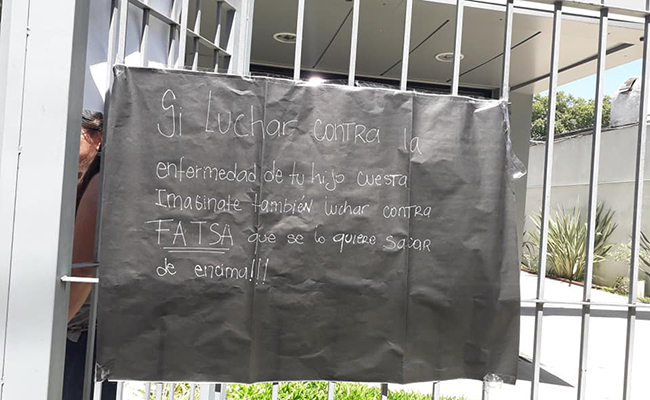 Si Luchar contra la
enfermedad de tu hijo cuesta
Imaginate también luchar contra
FATSA que se lo quiere sacar
de encima!!!